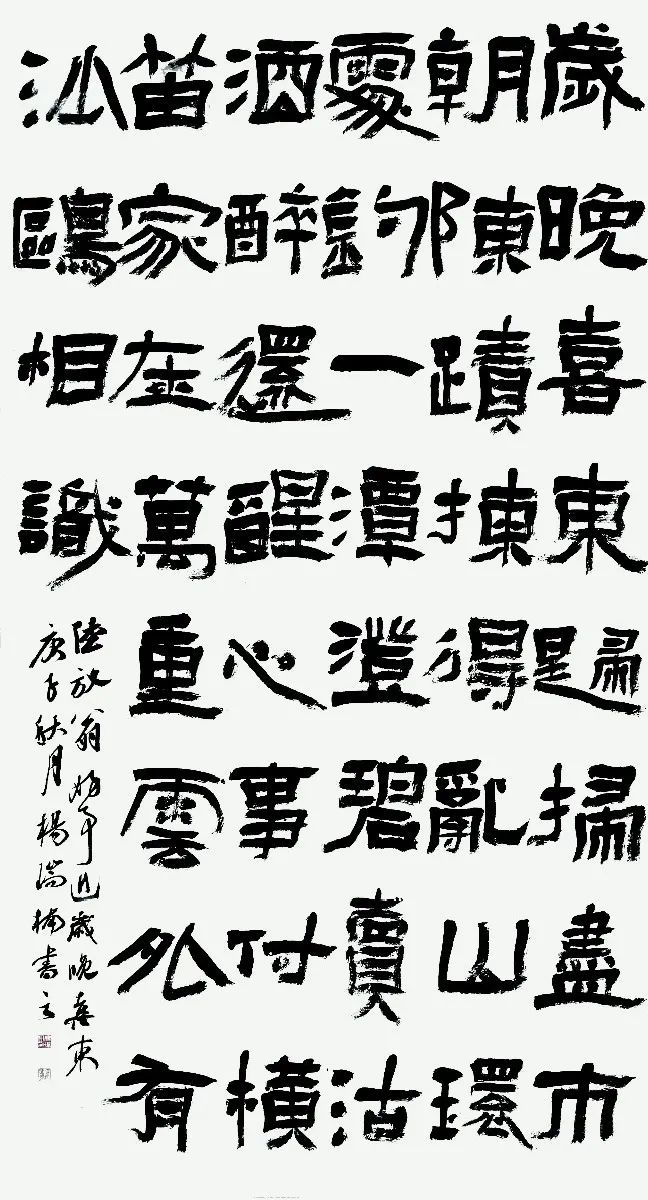 歲晚喜東歸掃盡市
朝陳蹟揀得亂山環
處釣一潭澄碧賣沽
酒醉還醒心事付橫
笛家在萬重雲外有
沙鷗相識
陸放翁好事近歲晚喜東
庚子秋月楊瑞楠書之